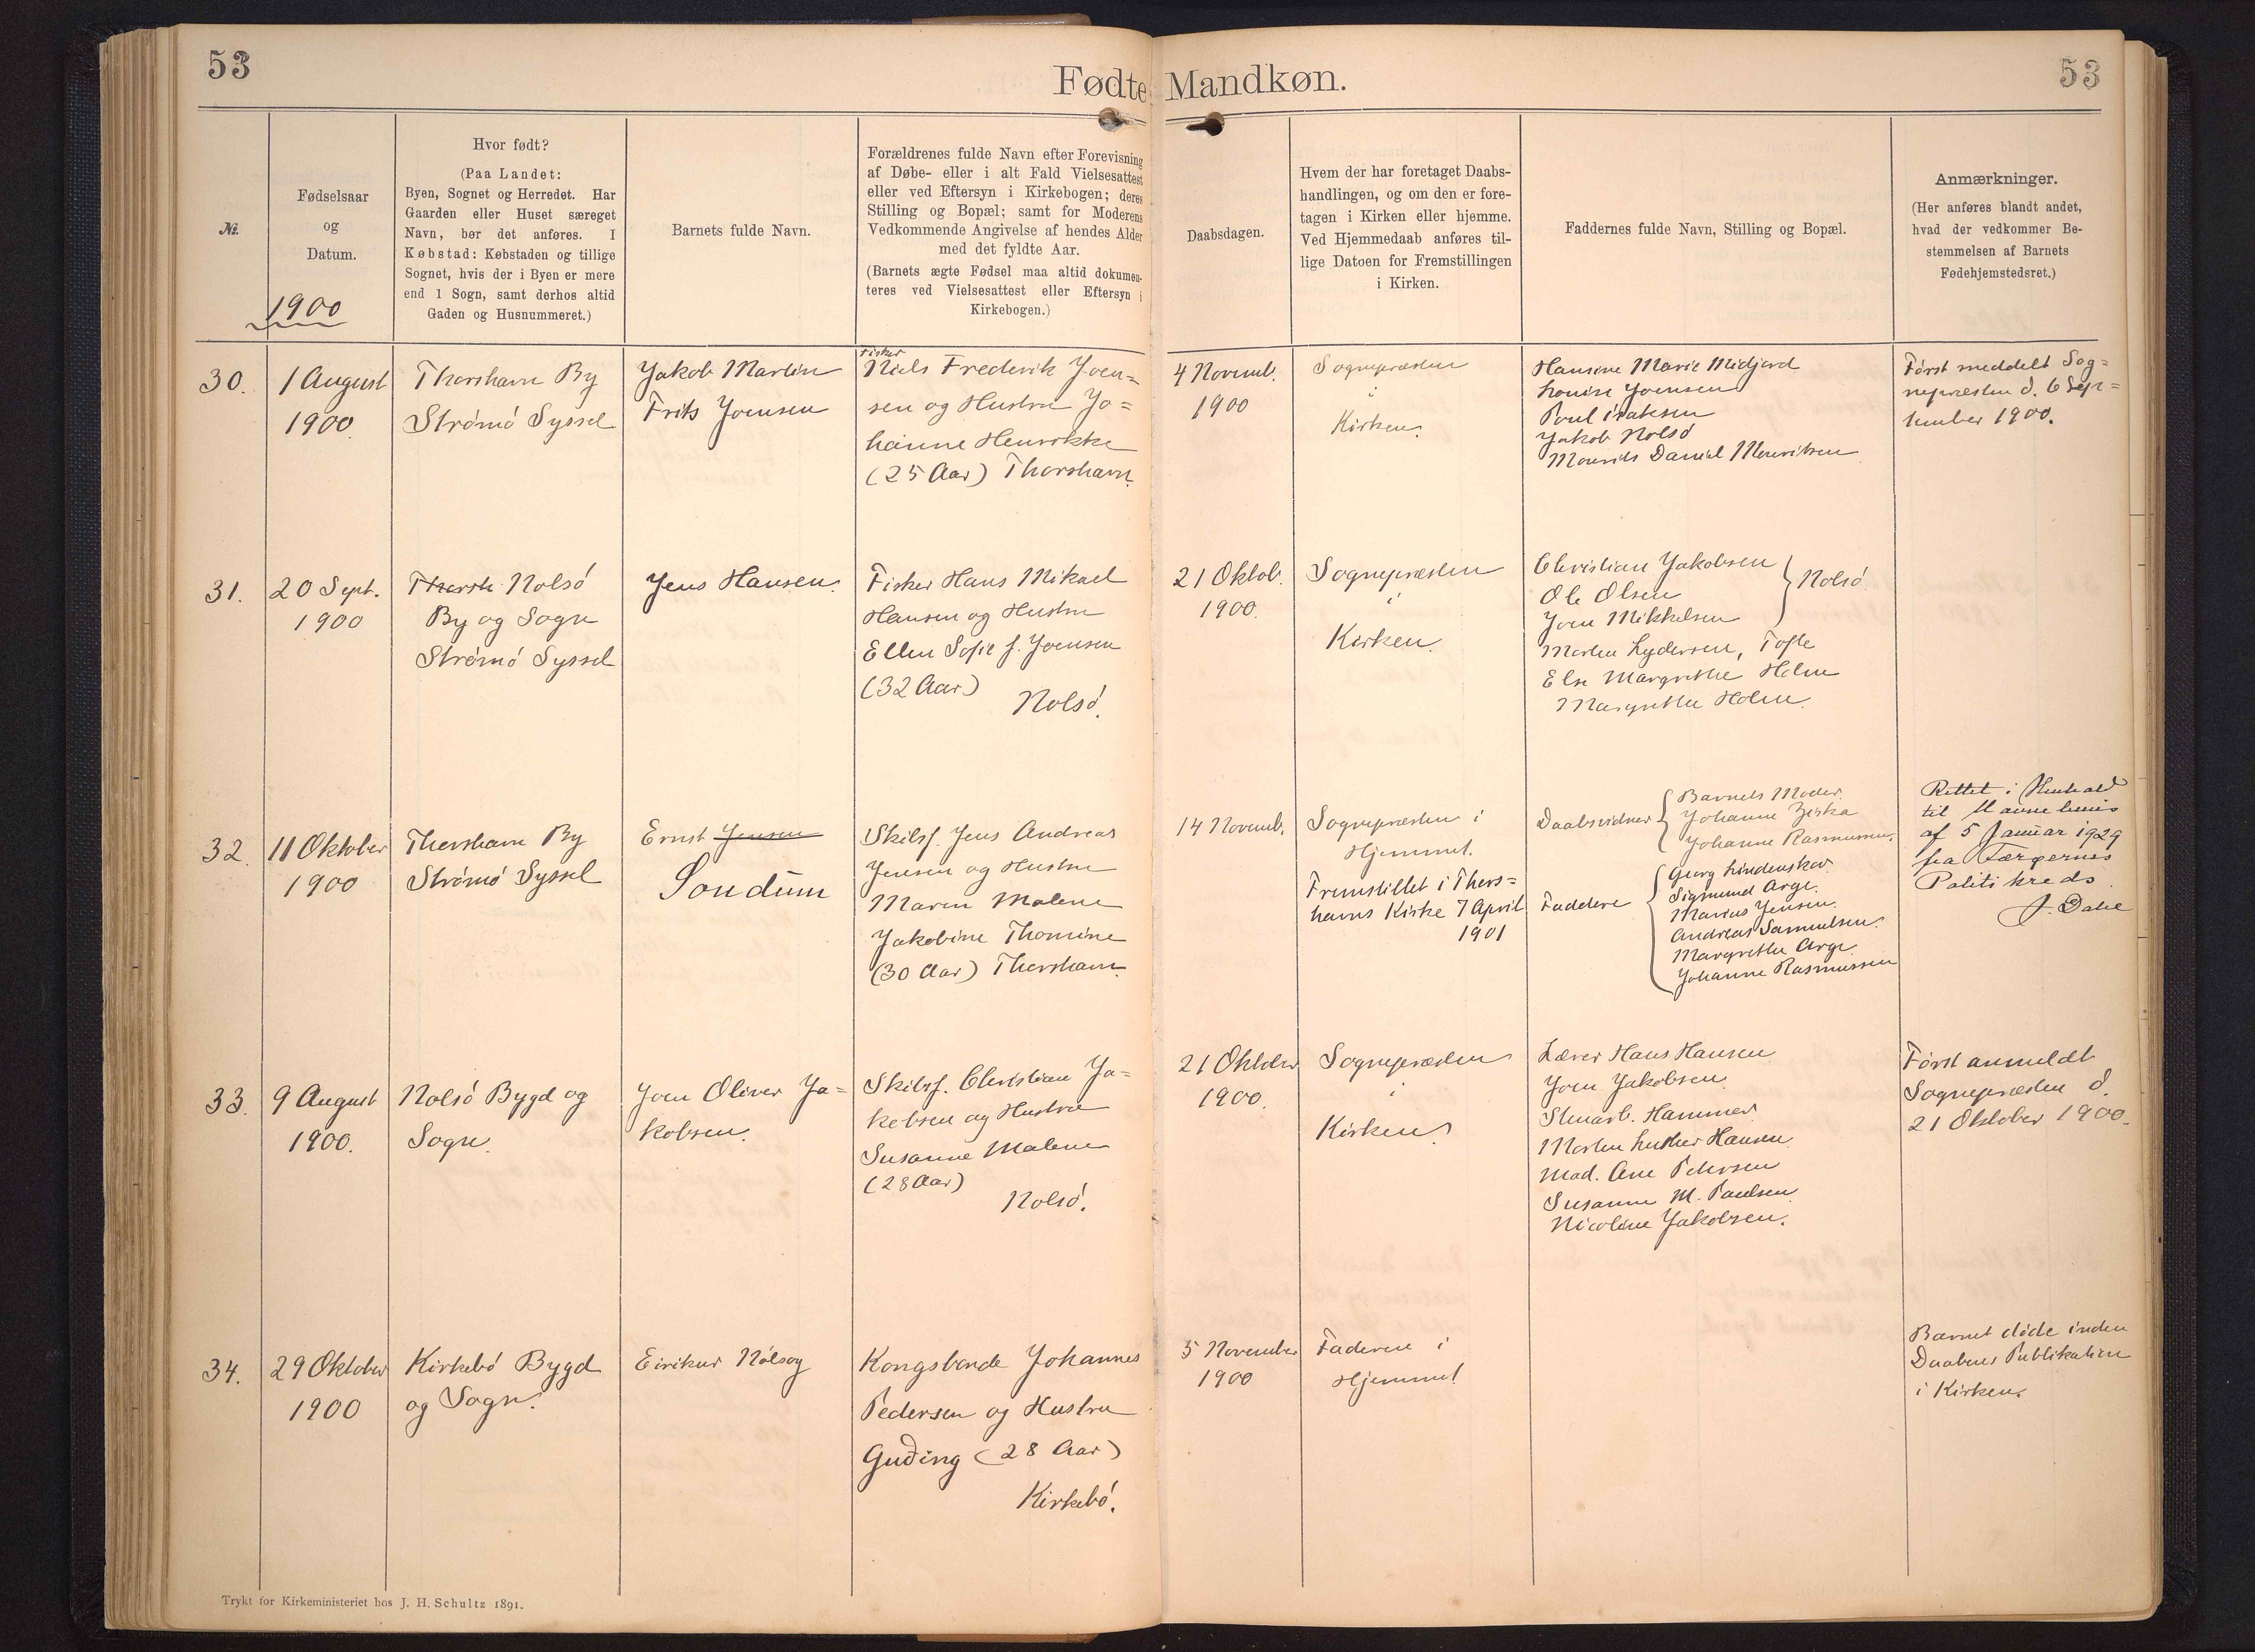 53
Fødte Mandkøn.
53
№
Fødselsaar
og
Datum.
1900
Hvor født?
(Paa Landet:
Byen, Sognet og Herredet. Har
Gaarden eller Huset særeget
Navn, bør det anføres. I
Købstad: Købstaden og tillige
Sognet, hvis der i Byen er mere
end 1 Sogn, samt derhos altid
Gaden og Husnummeret.)
Barnets fulde Navn.
Forældrenes fulde Navn efter Forevisning
af Døbe- eller i alt Fald Vielsesattest
eller ved Eftersyn i Kirkebogen; deres
Stilling og Bopæl; samt for Moderens
Vedkommende Angivelse af hendes Alder
med det fyldte Aar.
(Barnets ægte Fødsel maa altid dokumen-
teres ved Vielsesattest eller Eftersyn i
Kirkebogen.)
Daabsdagen.
Hvem der har foretaget Daabs-
handlingen, og om den er fore-
tagen i Kirken eller hjemme.
Ved Hjemmedaab anføres til-
lige Datoen for Fremstillingen
i Kirken.
Faddernes fulde Navn, Stilling og Bopæl.
Anmærkninger.
(Her anføres blandt andet,
hvad der vedkommer Be-
stemmelsen af Barnets
Fødehjemstedsret.)
30.
1 August
1900
Thorshavn By
Strømø Syssel
Jakob Martin
Frits Joensen
Fisker
Niels Frederik Joen=
sen og Hustru Jo=
hanne Henrikke
(25 Aar) Thorshavn.
4 Novemb.
1900
Sognepræsten
i
Kirken.
Hansine Marie Midjord
Louise Joensen
Poul Isaksen
Jakob Nolsø
Mourids Daniel Mouritsen
Først meddelt Sog=
nepræsten d. 6 Sep=
tember 1900.
31.
20 Sept.
1900
Thorsh Nolsø
By og Sogn
Strømø Syssel
Jens Hansen.
Fisker Hans Mikael
Hansen og Hustru
Ellen Sofie f. Joensen
(32 Aar)
Nolsø.
21 Oktob.
1900.
Sognepræsten
i
Kirken.
Christian Jakobsen
Ole Olsen
Joen Mikkelsen
Nolsø
Morten Lydersen, Tofte
Else Margrethe Holm
Margrethe Holm
32.
11 Oktober
1900
Thorshavn By
Strømø Syssel
Ernst Jensen
Sondum
Skibsf. Jens Andreas
Jensen og Hustru
Maren Malene
Jakobine Thomine
(30 Aar) Thorshavn.
14 Novemb.
Sognepræsten i
Hjemmet.
Fremstillet i Thors=
havns Kirke 7 April
1901
Daabsvidner
Barnets Moder.
Johanne Ziska
Johanne Rasmussen.
Faddere
Georg Lindenskov
Sigmund Arge.
Marius Jensen.
Andreas Samuelsen.
Margrethe Arge
Johanne Rasmussen
Rettet i Henhold
til Navnebevis
af 5 Januar 1929
fra Færøernes
Politikreds.
J. Dahl
33.
9 August
1900.
Nolsø Bygd og
Sogn.
Joen Oliver Ja=
kobsen.
Skibsf. Christian Ja=
kobsen og Hustru
Susanne Malene
(28 Aar)
Nolsø.
21 Oktober
1900.
Sognepræsten
i
Kirken.
Lærer Hans Hansen
Joen Jakobsen
Hammer
Morten Luther Hansen
Mad. Ane Petersen
Susanne M. Paulsen
Nicoline Jakobsen.
Først anmeldt
Sognepræsten d.
21 Oktober 1900.
34.
29 Oktober
1900
Kirkebø Bygd
og Sogn.
Eirikur Nólsoy
Kongsbonde Johannes
Pedersen og Hustru
Guðing (28 Aar)
Kirkebø.
5 November
1900
Faderen i
Hjemmet
Barnet døde inden
Daabens Publikation
i Kirken.
Trykt for Kirkeministeriet hos J. H. Schultz 1891.